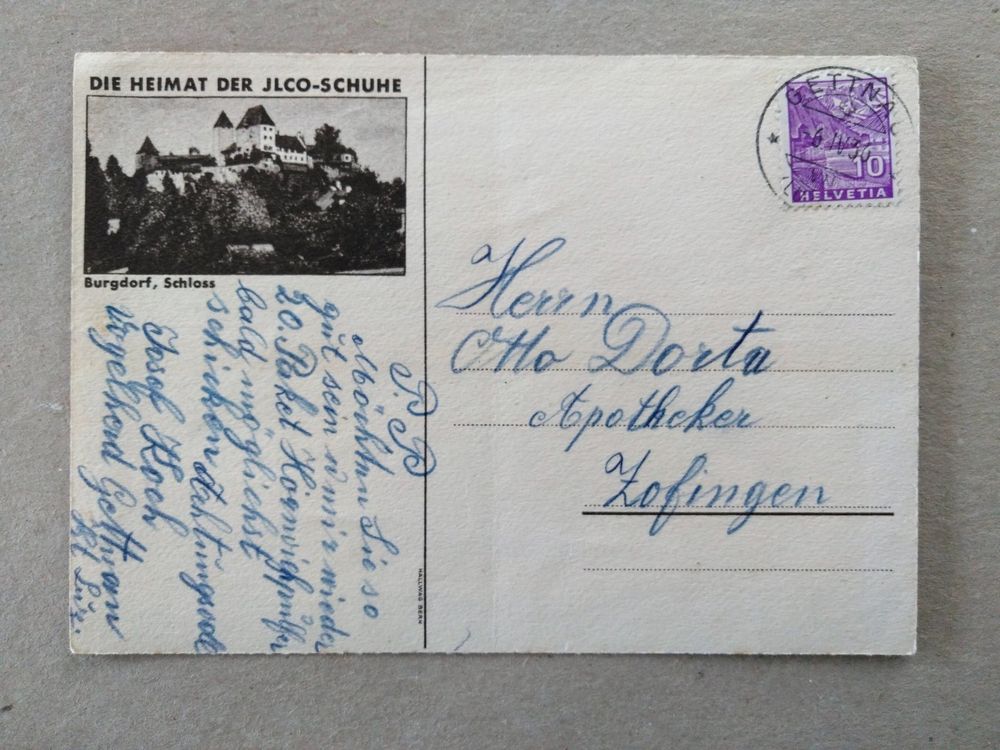 DIE HEIMAT DER JLCO-SCHUHE
Burgdorf, Schloss
GETTNAU
6 IV 36
10
HELVETIA
Herrn
Otto Dorta
Apotheker
Zofingen
P. P.
Möchten Sie so
gut sein u mir wieder
20. Paket
bald möglichst
schicken Achtungsvoll
Josef Koch
Gettnau
Kt. Luz.
HALLWAG BERN